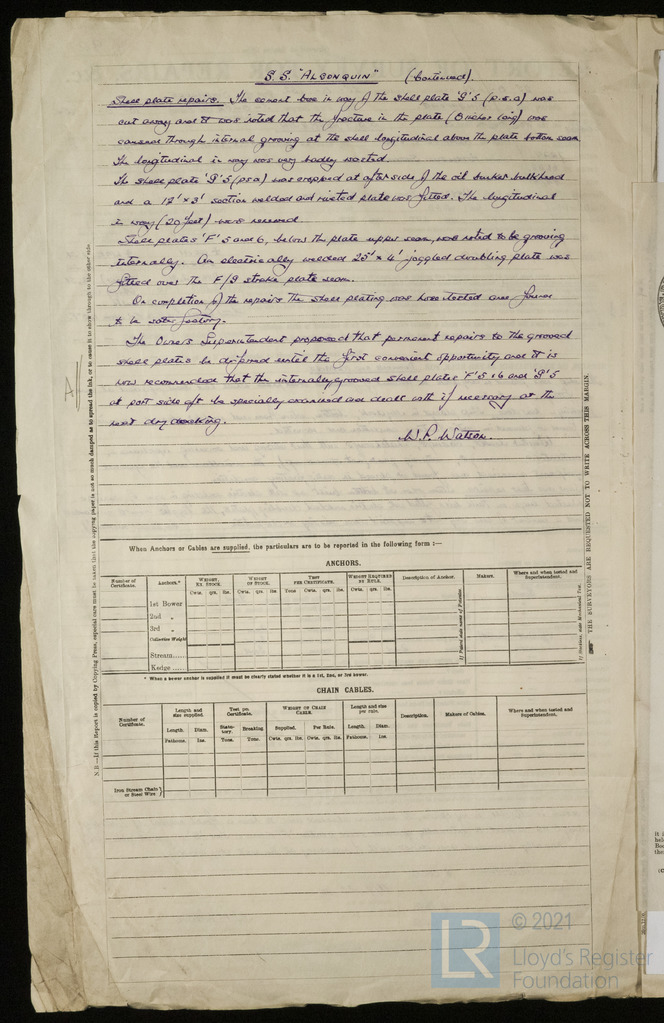 S.S. "ALGONQUIN" (Continued).
Shell plate repairs. The cement box in way of the shell plate 'G' 5 (p.s.a) was
cut away and it was noted that the fracture in the plate (6 inches long) was
caused through internal grooving at the shell longitudinal above the plate bottom seam
The longitudinal in way was very badly wasted.
The shell plate 'G' 5 (psa) was cropped at after side of the oil bunker bulkhead
and a 12' x 3' section welded and riveted plate was fitted. The longitudinal
in way (20 feet) was renewed.
Shell plates 'F' 5 and 6, below the plate upper seam, was noted to be grooving
internally. An electrically welded 25' x 4' joggled doubling plate was
fitted over the F/G strake plate seam.
On completion of the repairs the shell plating was hose tested and found
to be satisfactory.
The Owners Superintendent proposed that permanent repairs to the grooved
shell plates be deferred until the first convenient opportunity and it is
now recommended that the internally grooved shell plates 'F' 5 & 6 and 'G' 5
at port side aft be specially examined and dealt with if necessary at the
next dry docking.
W. P. Watson.
N.B.—If this Report is copied by Copying Press, especial care must be taken that the copying paper is not so much damped as to spread the ink, or to cause it to show through to the other side.
THE SURVEYORS ARE REQUESTED NOT TO WRITE ACROSS THIS MARGIN.
When Anchors or Cables are supplied, the particulars are to be reported in the following form :—
ANCHORS.
Number of Certificate. Anchors.* WEIGHT, EX. STOCK. WEIGHT OF STOCK. TEST PER CERTIFICATE. WEIGHT REQUIRED BY RULE. Description of Anchor. Makers. Where and when tested and Superintendent.
Cwts. qrs. lbs. Cwts. qrs. lbs. Tons Cwts. qrs. lbs. Cwts. qrs. lbs.
1st Bower
2nd „
3rd „
Collective Weight
Stream......
Kedge......
* When a bower anchor is supplied it must be clearly stated whether it is a 1st, 2nd, or 3rd bower.
CHAIN CABLES.
Number of Certificate. Length and size supplied. Test per Certificate. WEIGHT OF CHAIN CABLE. Length and size per rule. Description. Makers of Cables. Where and when tested and Superintendent.
Length. Diam. Statutory. Breaking Supplied. Per Rule. Length. Diam.
Fathoms. Ins. Tons. Tons. Cwts. qrs. lbs. Cwts. qrs. lbs. Fathoms. Ins.
Iron Stream Chain or Steel Wire
LR
© 2021
Lloyd's Register
Foundation